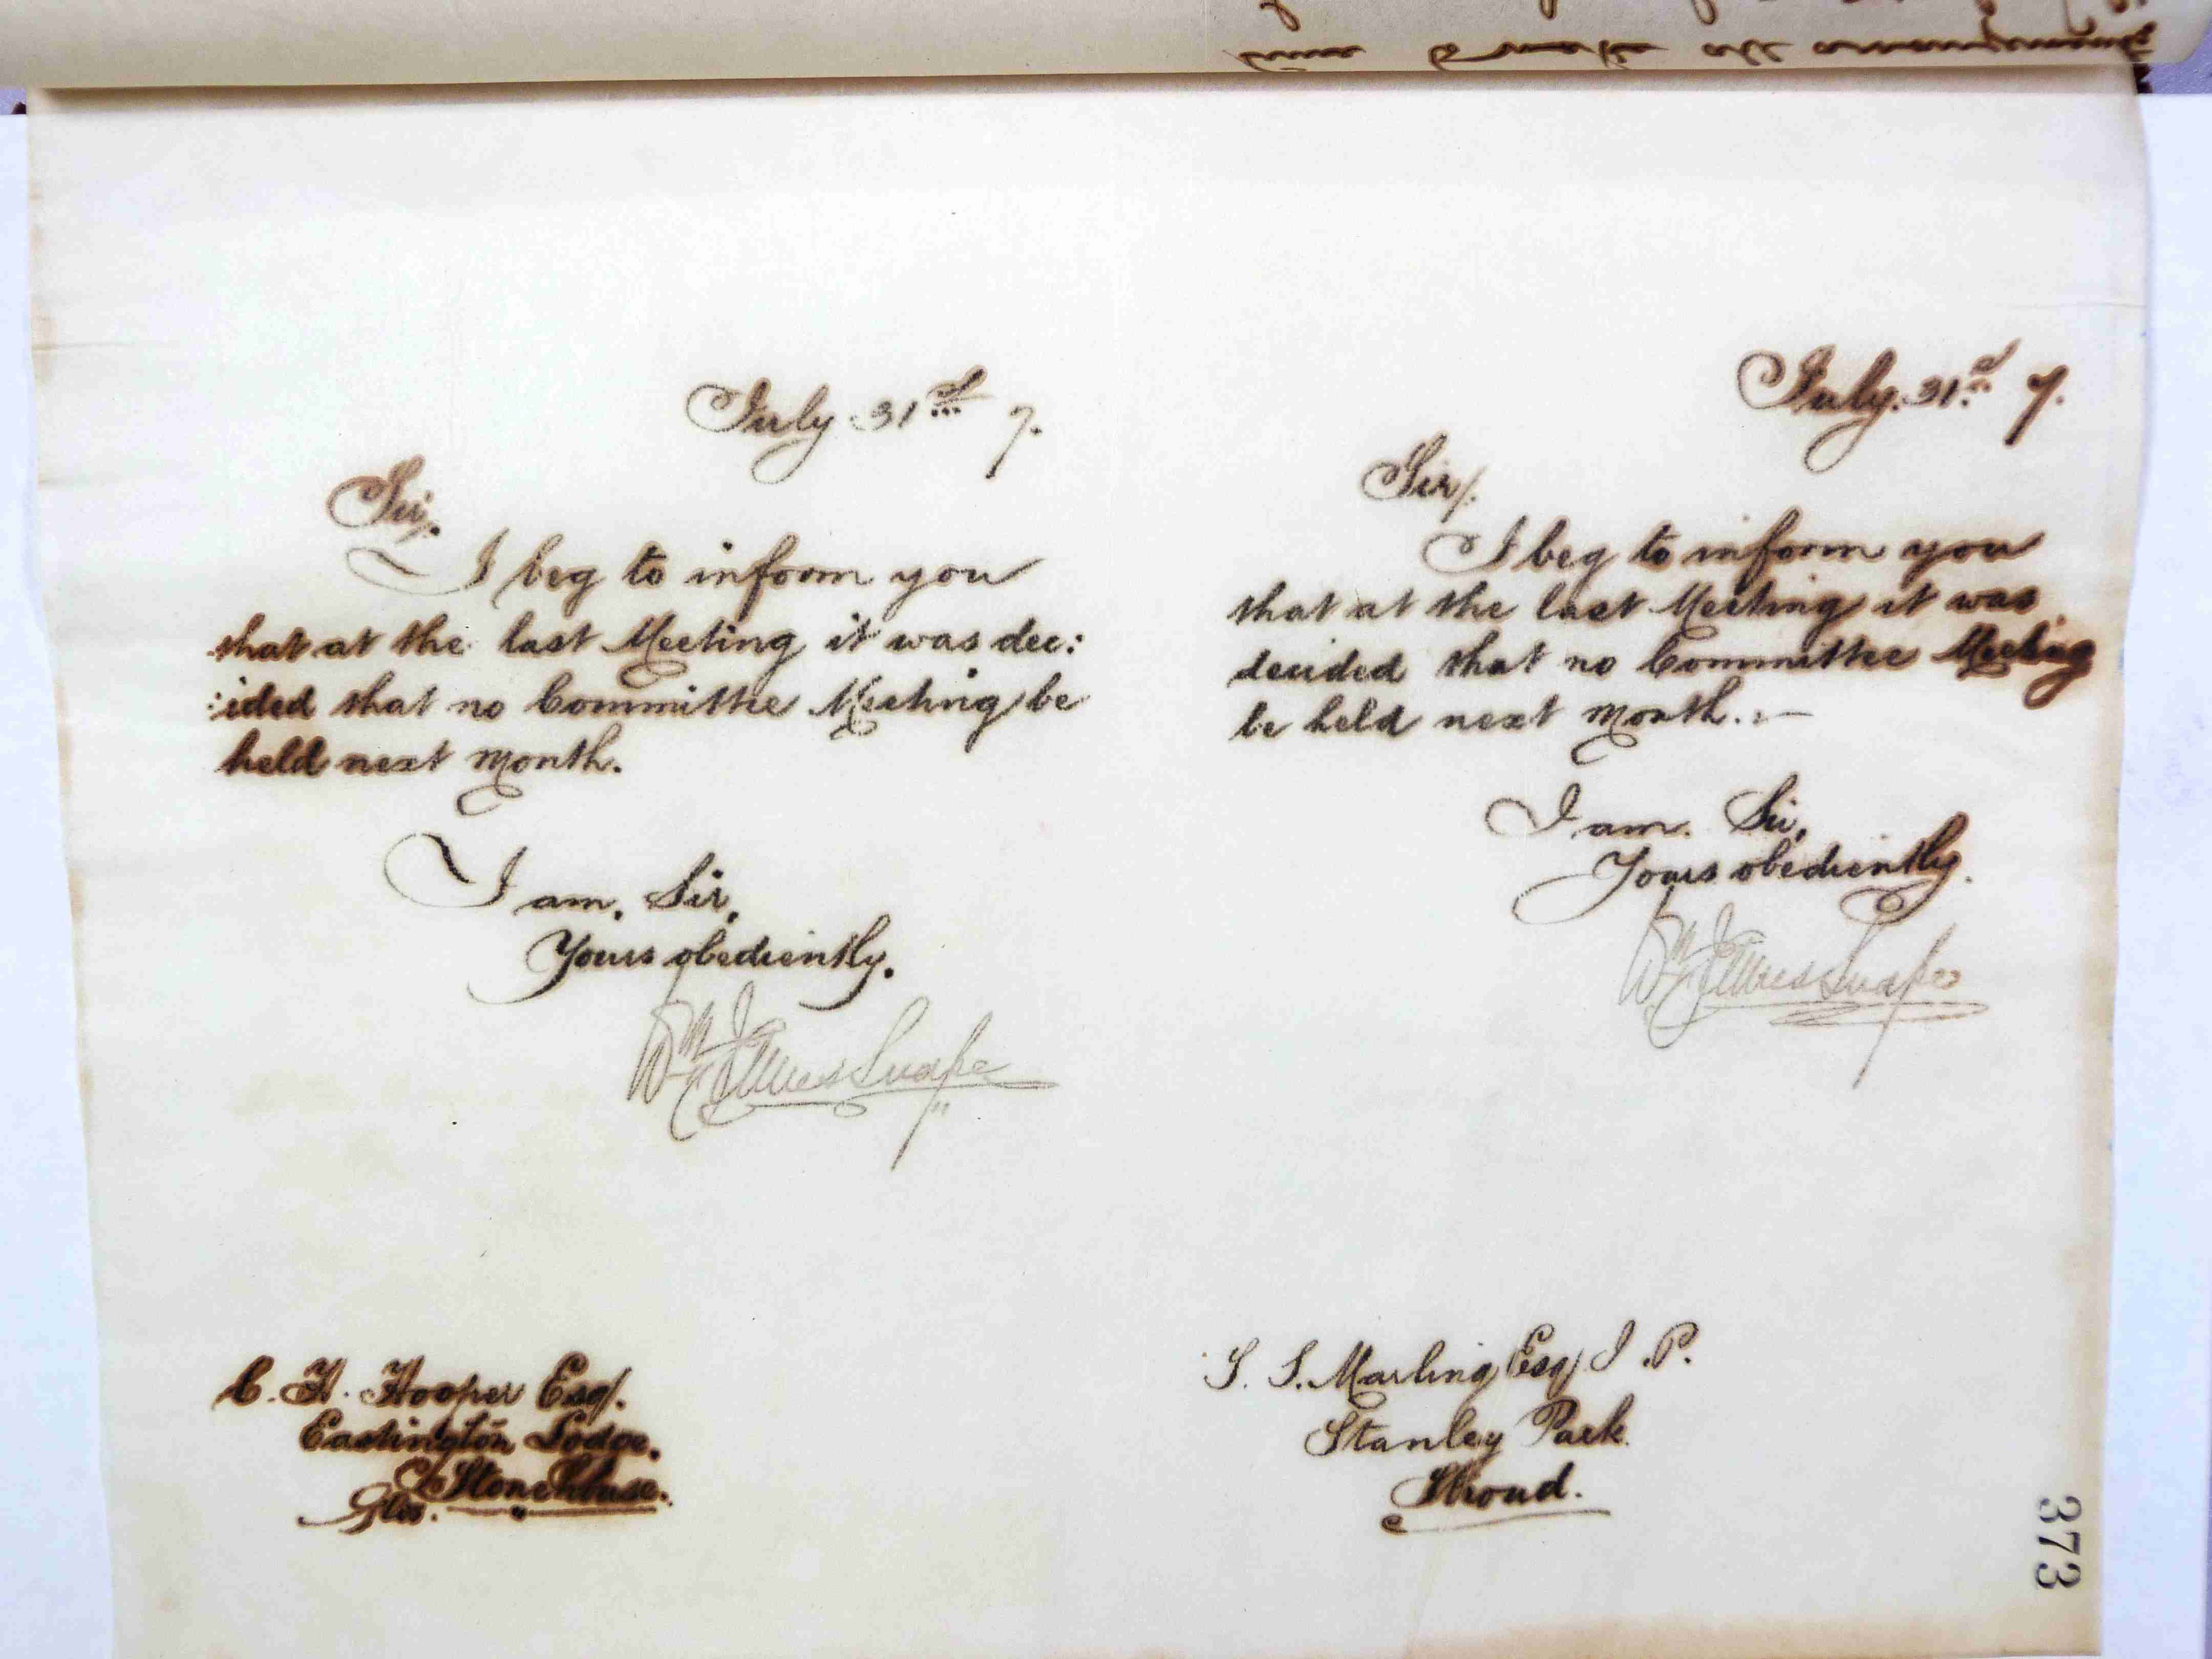 July 31st 7.
Sir/.
I beg to inform you
that at the last Meeting it was dec:
:ided that no Committee Meeting be
held next Month.
I am, Sir,
Yours obediently.
Wm James Snape
C. H. Hooper Esq/.
Eastington Lodge.
Stonehouse.
Glos.
July. 31st 7.
Sir/.
I beg to inform you
that at the last Meeting it was
decided that no Committee Meeting
be held next Month. :—
I am. Sir,
Yours obediently.
Wm James Snape
S. S. Marling Esq/ J. P.
Stanley Park
Stroud.
373